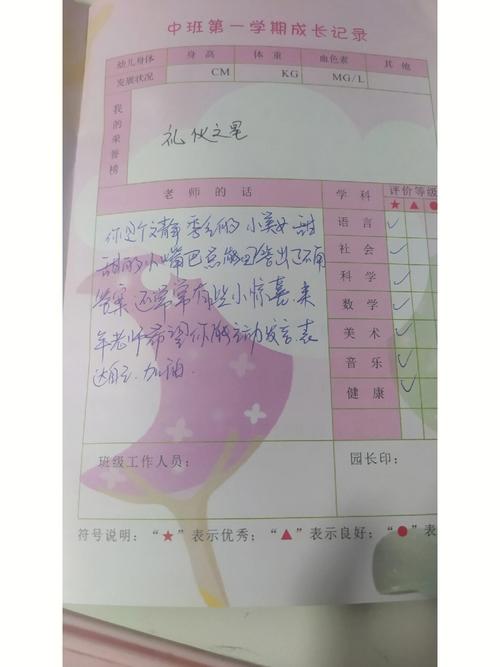 中班第一学期成长记录
幼儿身体 身高 体重 血色素 其他
发展状况 CM KG MG/L
我的荣誉榜 礼仪之星
老师的话 学科 评价等级
★ ▲ ●
你是个文静秀气的小美女 甜
甜的小嘴巴总能回答出不同
答案 还常常有些小惊喜.来
年老师希望你能主动发言.表
达自己.加油.
语言 ✓
社会 ✓
科学 ✓
数学 ✓
美术 ✓
音乐 ✓
健康 ✓
班级工作人员： 园长印：
符号说明：“★”表示优秀；“▲”表示良好；“●”表